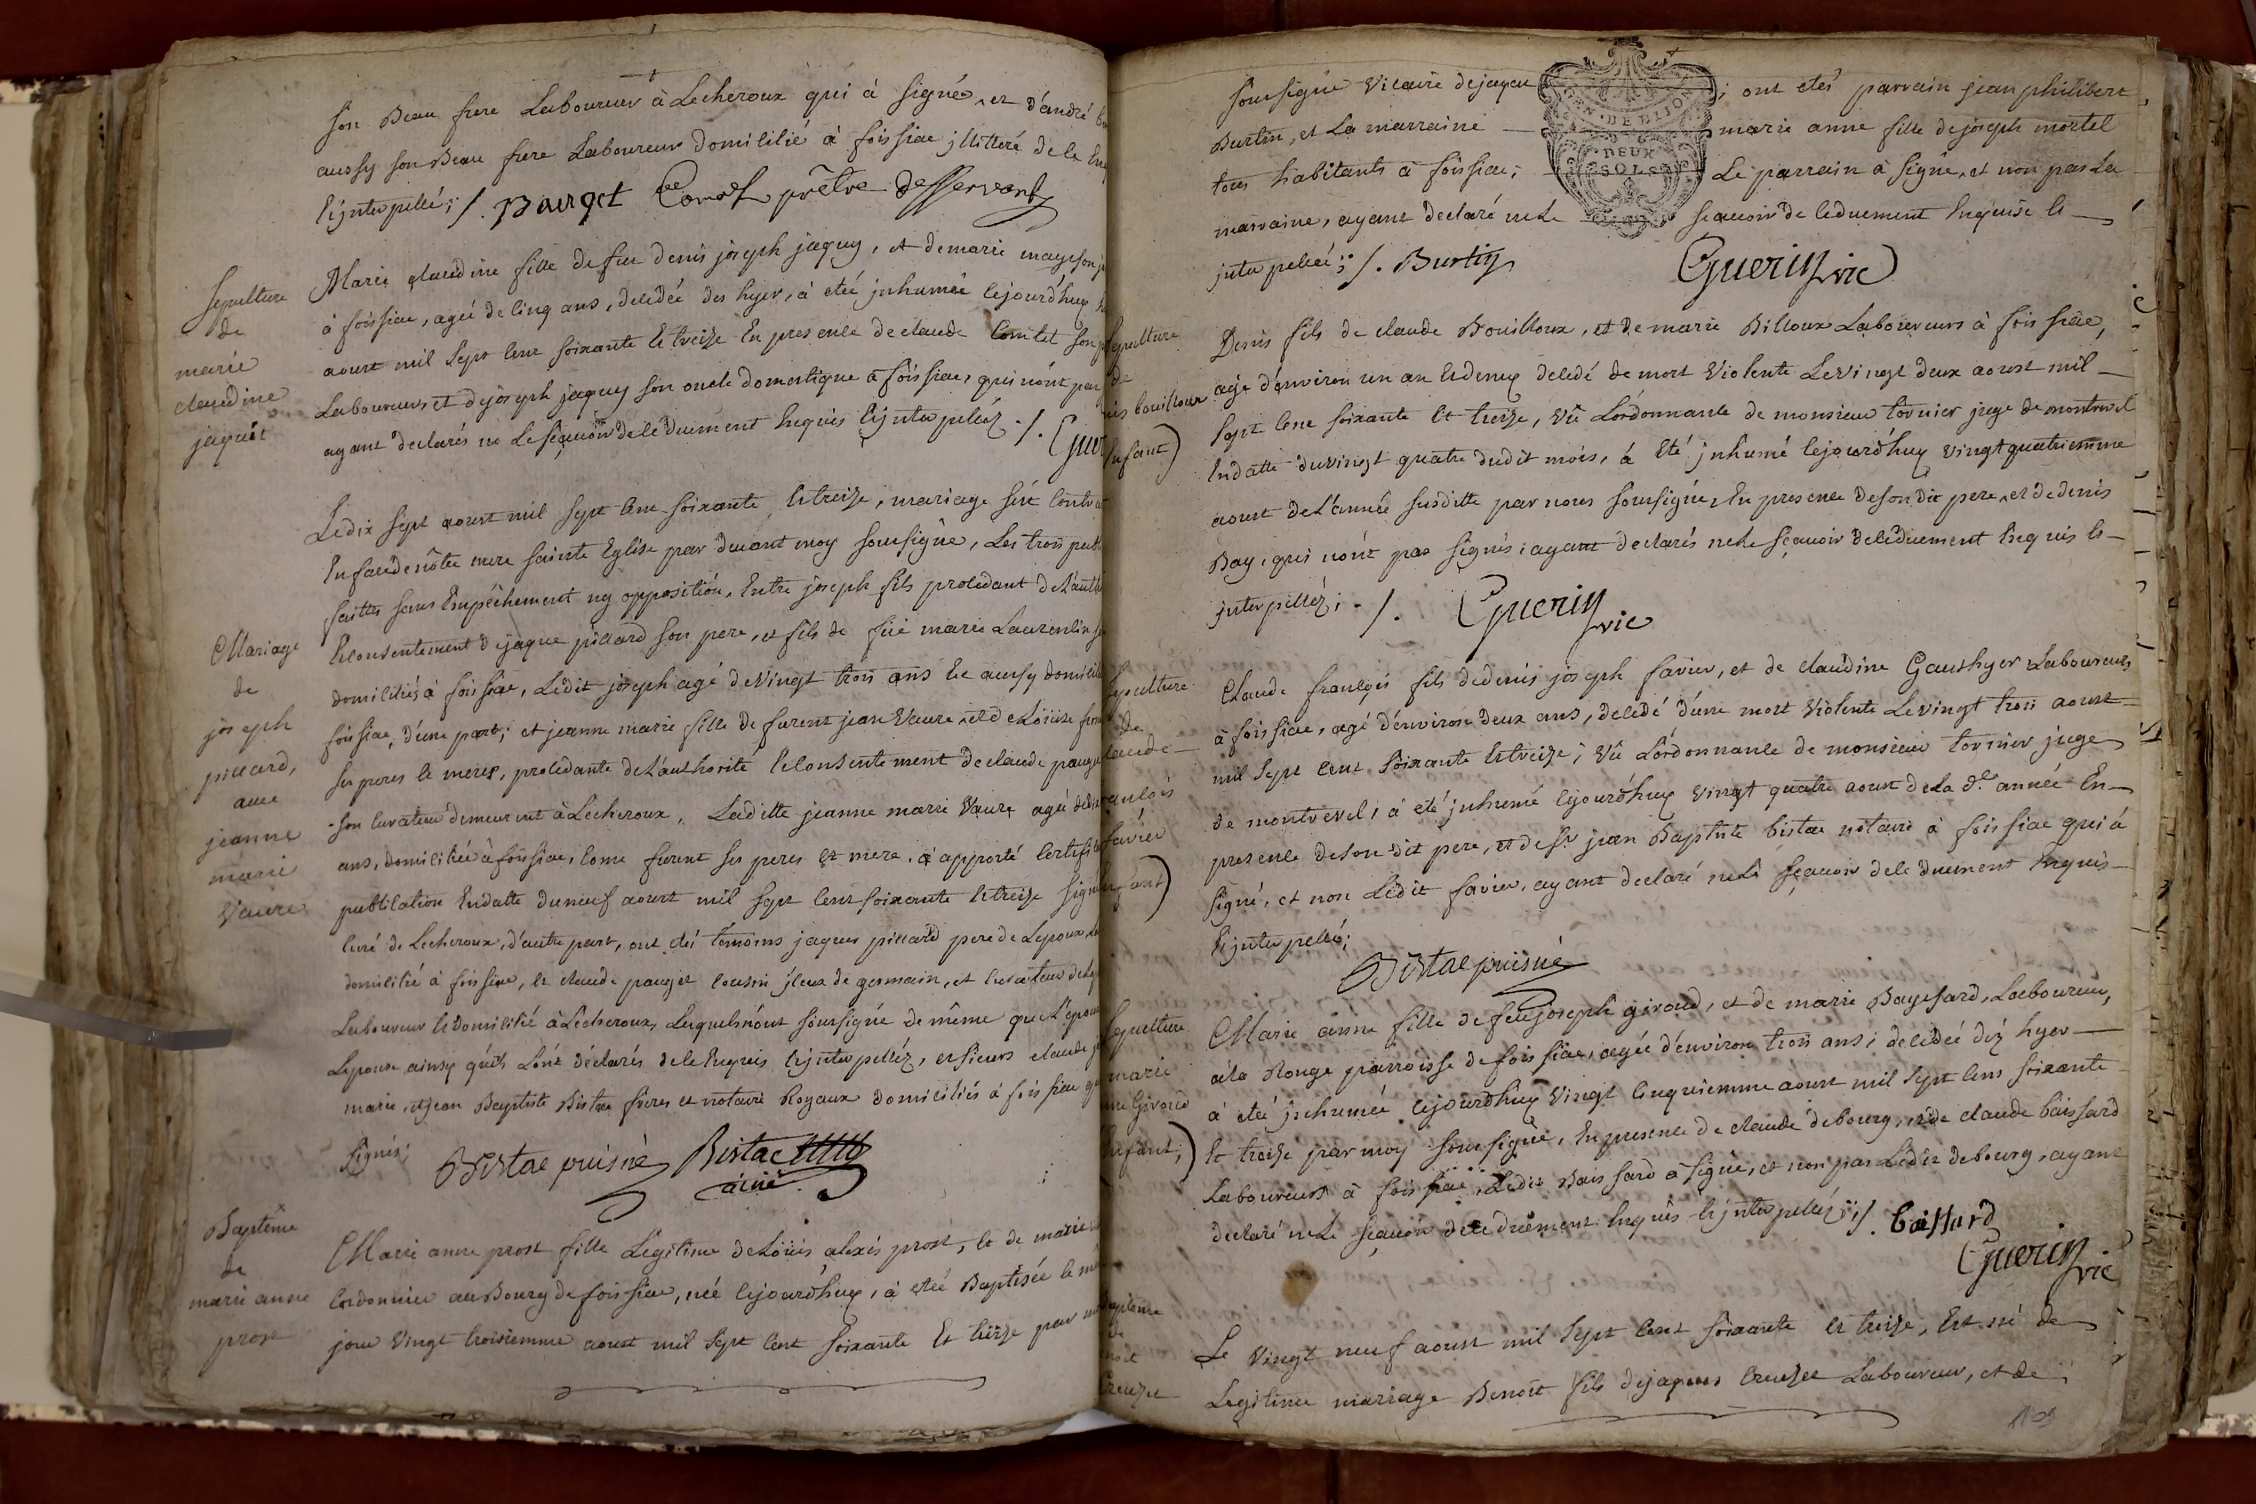 son Beau frere Laboureur à Lecheroux qui à signé, et d'andré
aussy son Beau frere Laboureur domicilié à foissiac jllitteré de le
Ejnterpellé; /. Pauget Comte prêtre desservant
Sepulture
de
marie
claudine
jaquit
Marie claudine fille de feu denis joseph jaquy, et de marie
à foissiac, agée de cinq ans, decedée des hyer, à eté jnhumée cejourd'huy
aoust mil sept cent soixante et treize En presence de claude Comtet son
Laboureurs et de joseph jaquy son oncle domestique à foissiac, qui n'ont pas
ayant declarés ne le sçauoir de ce Duement Enquis Ejnterpellés ./.
Mariage
de
joseph
pillard,
auec
jeanne
marie
vaure
Le dix sept aoust mil sept cent soixante et treize, mariage s'ést
En face de nôtre mere sainte Eglise par deuant moy soussigné, Les trois
faittes sans Empêchement ny opposition, Entre joseph fils procedant de
Et consentement de jaque pillard son pere, et fils de füe marie Laurencin
domiciliés à foissiac, Ledit joseph agé de vingt trois ans Et aussy
foissiac, d'une part; et jeanne marie fille de furent jean Vaure, et de Loüise
ses peres et meres, procedante de L'authorité Et consentement de claude
son curateur demeurant à Lecheroux, Laditte jeanne marie Vaure agée de
ans, domiciliée à foissiac, come furent ses peres et mere, à apporté
publication En datte du neuf aoust mil sept cent soixante et treize
curé de Lecheroux, d'autre part, ont été témoins jaques pillard pere de Lepoux
domicilié à foissiac, et claude pauget cousin jssus de germain, et curateur
Laboureur et domicilié à Lecheroux, Lesquels n'ont soussigné de même que
Lepouse ainsy qu'ils L'ont déclarés de le Enquis Ejnterpellés, et sieurs claude
marie, et jean Baptiste Bistac freres et notaire Royaux domiciliés à foissiac
signés;
Bistac puisné Bistac
ainé
Baptême
de
marie anne
prost
Marie anne prost fille Legitime de Loüis alexis prost, et de marie
Cordonnier au Bourg de foissiac, née cejourd'huy, à eté Baptisée le
jour vingt troisiemme aoust mil sept cent soixante Et treize par
soussigné Vicaire dejayat ; ont etés parrain jean philibert
Burtin, et La marraine marie anne fille de joseph mortel
tous habitants à foissiac; Le parrain à signé, et non pas La
marraine, ayant declaré ne Le sçauoir de ceduement Enquise Et
jnterpellée; /. Burtin Guerin vic
GEN. DE DIJON
DEUX
SOLS
Sepulture
de
bouilloux
Enfant)
Denis fils de claude Bouilloux, et de marie Billoux Laboureurs à foissiac,
agé d'enuiron un an Et demy decedé de mort violente Le vingt deux aoust mil
sept cent soixante Et treize, vû L'ordonnance de monsieur tornier juge de montrevel
En datte du vingt quatre dudit mois, à eté jnhumé cejourd'huy vingt quatriemme
aoust de L'année susditte par nous soussigné, En presence de son dit pere, et de denis
Bay, qui n'ont pas signés, ayant declarés ne Le sçauoir de ceduement Enquis Et
jnterpellés; ./. Guerin
vic
Sepulture
de
claude
françois
favier
Enfant)
Claude françois fils de denis joseph favier, et de claudine Gauthyer Laboureurs
à foissiac, agé d'enuiron deux ans, decedé d'une mort violente Le vingt trois aoust
mil sept cent soixante Et treize; vû L'ordonnance de monsieur tornier juge
de montrevel, à eté jnhumé cejourd'huy vingt quatre aoust de La dte année En
presence de son dit pere, et de Sr jean Baptiste bistac notaire à foissiac qui à
signé, et non Ledit favier, ayant declaré ne Le sçauoir de ceduement Enquis
Ejnterpellé;
Bistac puisné
Sepulture
marie
Giroud
Enfant;)
Marie anne fille de feu joseph giroud, et de marie Bayssard, Laboureur,
à la Rouge parroisse de foissiac, agée d'enuiron trois ans; decedée dez hyer
à eté jnhumée cejourd'huy vingt cinquiemme aoust mil sept cens soixante
Et treize par moy soussigné, En presence de claude debourg, et de claude baissard
Laboureurs à foissiac, Ledit Baissard a signé, et non pas Ledit debourg, ayant
declaré ne Le sçauoir de ceduement Enquis Ejnterpellés; /. baissard
Guerin
vic
Baptême
de
Benoit
Creuzet
Le vingt neuf aoust mil sept cent soixante et treize, Est né de
Legitime mariage Benoit fils de jaques Creuzet Laboureur, et de